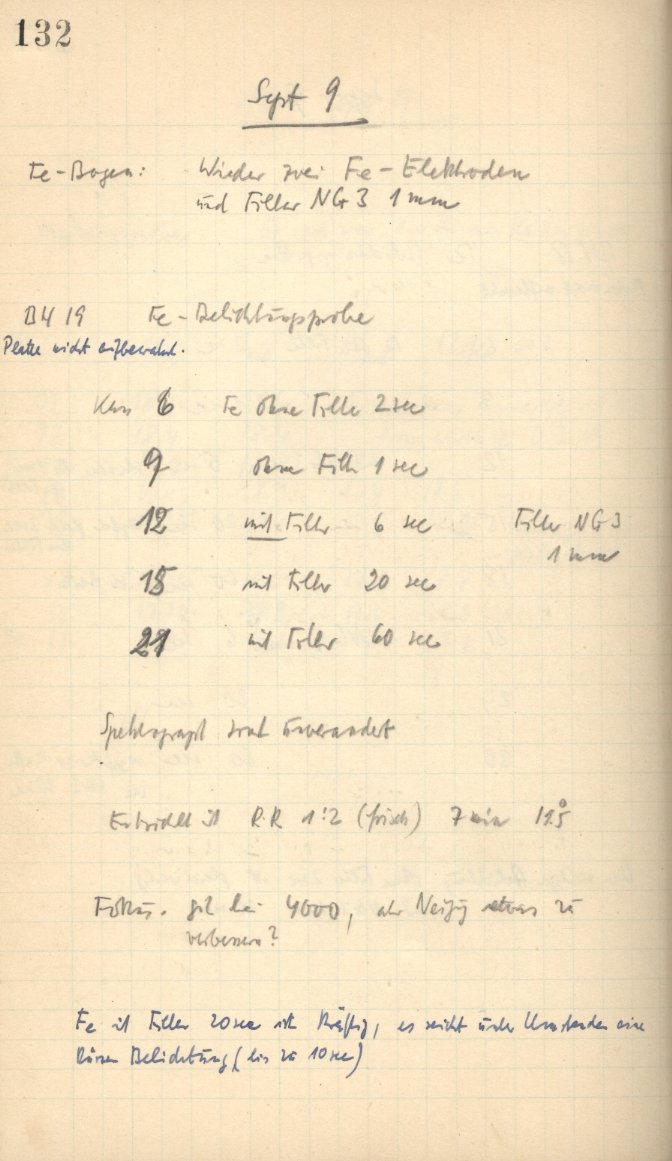 132
Sept 9
Fe-Bogen: Wieder zwei Fe-Elektroden
und Filter NG 3 1 mm
B4 19 Fe-Belichtungsprobe
Platte nicht aufbewahrt.
6 Fe ohne Filter 2 sec
9 ohne Filter 1 sec
12 mit Filter 6 sec Filter NG 3
1 mm
15 mit Filter 20 sec
21 mit Filter 60 sec
Spektrograph sonst unverändert
Entwickelt in R.R. 1:2 (frisch) 7 min 19.5°
Fokus. gut bei 4000, aber Neigung etwas zu
verbessern?
Fe mit Filter 20 sec ist kräftig, es reicht unter Umständen eine
kürzere Belichtung (bis zu 10 sec)